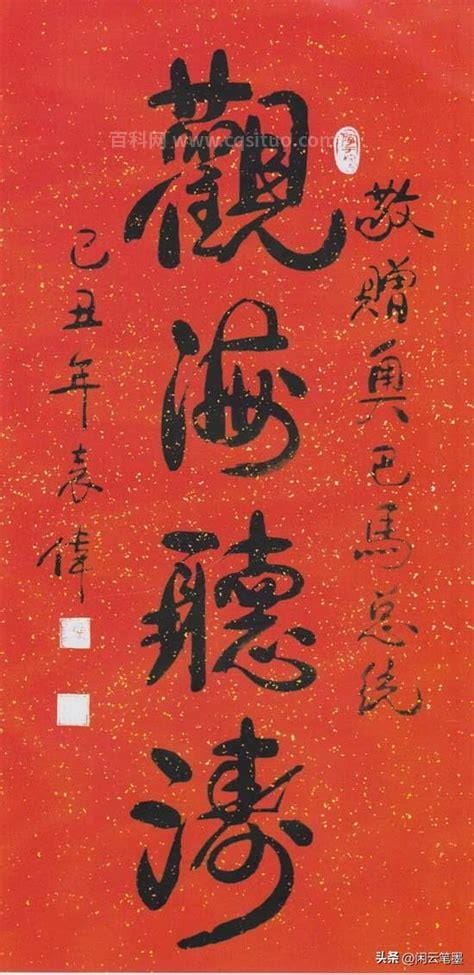 敬贈奥巴馬总统
觀海聽濤
己丑年袁偉
百科网 www.cqsituo.com
头条 @闲云笔墨